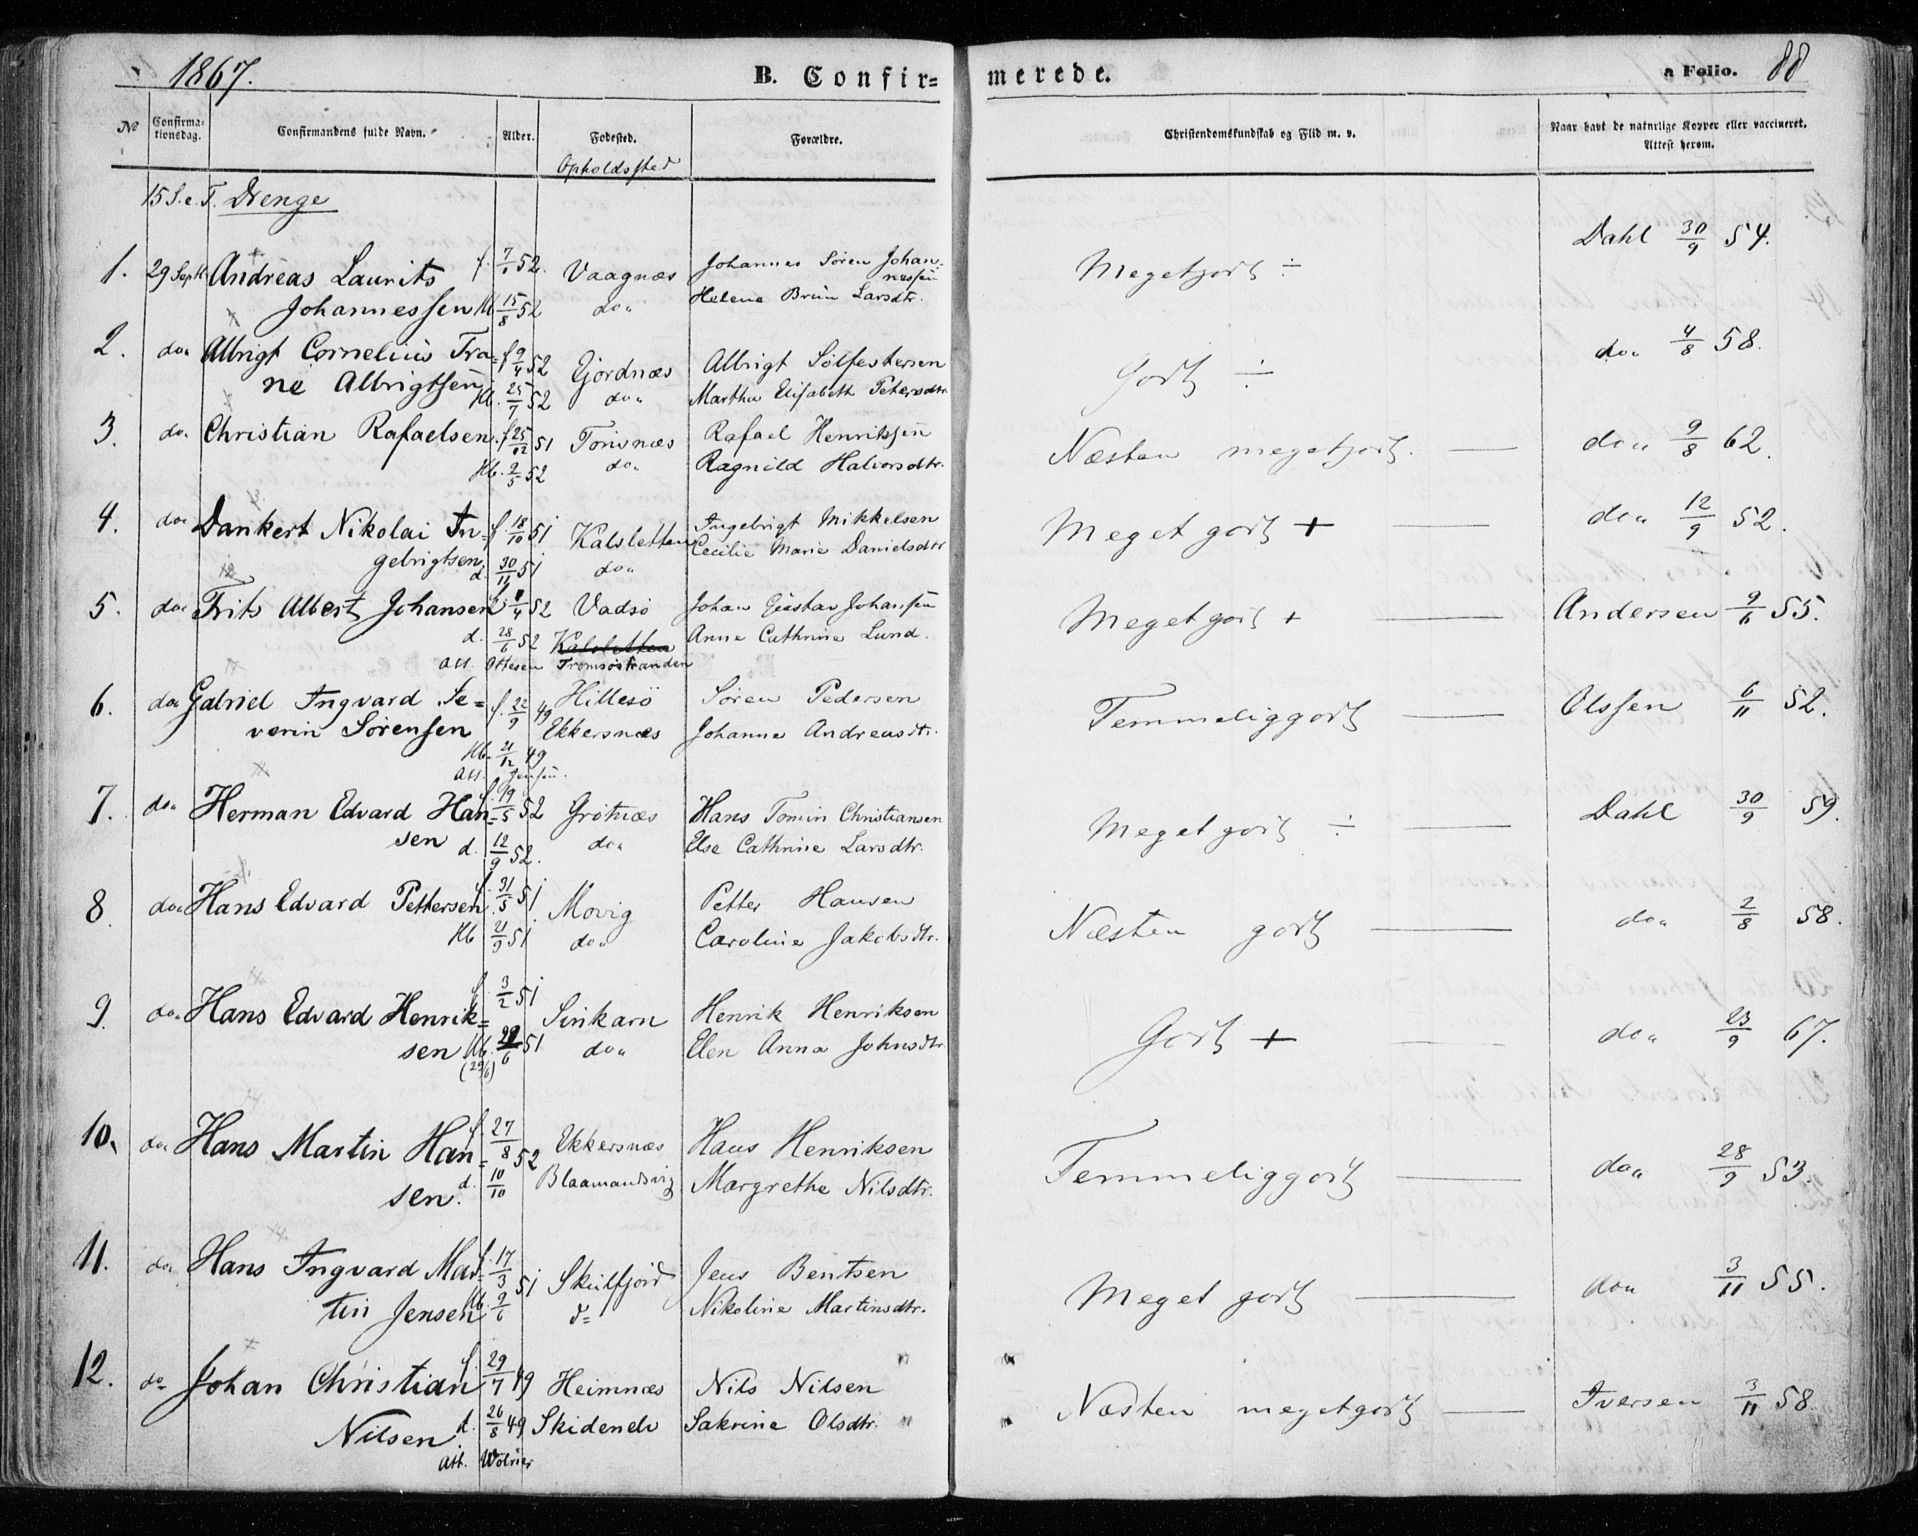 1867.
B. Confir=
merede.
a Folio. 88
No
Confirma-
tionsdag.
Confirmandens fulde Navn.
Alder.
Fødested.
Opholdssted
Forældre.
Christendomskundskab og Flid m. v.
Naar havt de naturlige Kopper eller vaccineret.
Attest herom.
15 S. e. T. Drenge
1. 29 Sept. Andreas Laurits f. 7/1 52. Vaagnæs Johannes Sören Johan- Megetgodt ÷ Dahl 30/9 54.
nessen
Johannessen Hb 15/8 52 do" Helene Brun Larsdtr.
2. do" Albrigt Cornelius Tra= f 9/4 52 Gjördnæs Albrigt Sölfestersen Godt ÷ do" 4/8 58.
ne Albrigtsen Hb. 25/7 52 do" Martha Elisabeth Petersdtr
3. do. Christian Rafaelsen f 25/12 51 Tönsnæs Rafael Henriksen Næsten megetgodt. — do" 9/8 62.
Hb. 2/5 52 do" Ragnild Halvorsdtr.
4. do" Dankert Nikolai In= f. 18/10 51 Kalsletten Ingebrigt Mikkelsen Meget godt + — do" 12/9 52.
gebrigtsen d. 30/11 51 do" Cecilie Marie Danielsdtr
5. do" Frits Albert Johansen f. /4 52 Vadsö Johan Gustav Johansen Meget godt + — Andersen 9/6 55.
d. 28/6 52 Kalsletten Anne Cathrine Lund.
Att. Ottesen Tromsöstranden
6. do" Gabriel Ingvard Se= f. 22/9 49 Hillesö Sören Pedersen Temmeliggodt — Olssen 6/11 52.
verin Sörensen Ekkersnæs Johanna Andreasdtr.
Hb. 21/12 49
Att. Jensen.
7. do" Herman Edvard Han= f. 19/5 52 Grötnæs Hans Tomin Christiansen Meget godt ÷ — Dahl 30/9 59.
sen d. 12/9 52. do" Else Cathrine Larsdtr.
8. do" Hans Edvard Pettersen f. 31/5 51 Movig Petter Hansen Næsten godt — do" 2/8 58.
Hb 21/9 51 do" Caroline Jakobsdtr.
9. do" Hans Edvard Henrik= f. 3/2 51 Sinkarn Henrik Henriksen Godt + — do" 23/9 67.
sen Hb. 29/6 51 do" Elen Anna Johnsdtr
(29/6)
10. do" Hans Martin Han= f. 27/8 52 Ekkersnæs Hans Henriksen Temmeliggodt — do" 28/9 53.
sen. d. 10/10 Blaamandsvig Margrethe Nilsdtr.
11. do" Hans Ingvard Mar= f. 17/3 51 Skulfjord Jens Bentsen Meget godt — do" 3/11 55.
tin Jensen Hb. 9/6 d= Nikoline Martinsdtr.
12. do= Johan Christian f. 29/7 49 Heimnæs Nils Nilsen Næsten megetgodt — Iversen 3/11 58.
Nilsen d. 26/8 49 Skidenelv Sakrine Olsdtr.
Att. Wolner